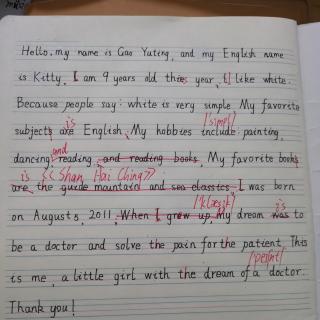 Hello, my name is Gao Yuting, and my English name
is Kitty. I am 9 years old this year. I like white.
Because people say: white is very simple. My favorite
|simpl|
subjects are English. My hobbies include: painting,
is
dancing, reading and reading books. My favorite books
and
are the guide mountain and sea classics. I was born
is 《Shan Hai Ching》
on August 5, 2011. When I grew up, my dream was to
is
be a doctor and solve the pain for the patient. This
is me, a little girl with the dream of a doctor.
Thank you!